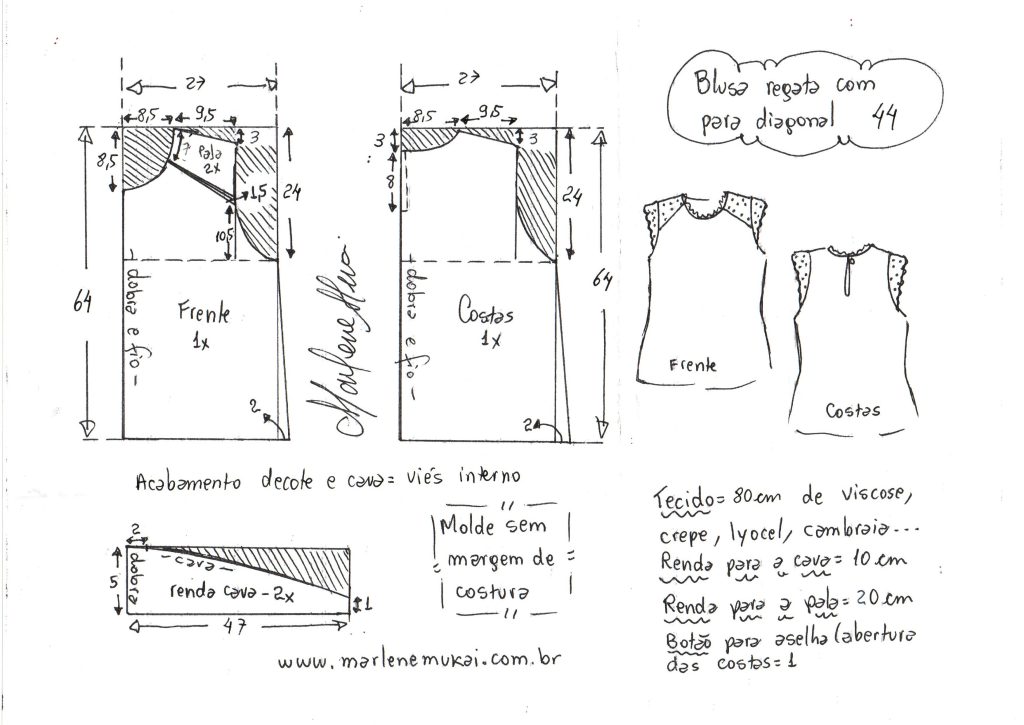 Blusa regata com
para diagonal 44
27
8,5 9,5
3
8,5
7
Pala
2x
1,5
24
10,5
64
dobra e fio
Frente
1x
2
Marlene Mukai
27
8,5 9,5
3
3
8
24
64
dobra e fio
Costas
1x
2
Frente
Costas
Acabamento decote e cava = viés interno
2
5
dobra
cava
renda cava - 2x
1
47
Molde sem
margem de
costura
www.marlenemukai.com.br
Tecido = 80 cm de viscose,
crepe, lyocel, cambraia...
Renda para a cava = 10 cm
Renda para a pala = 20 cm
Botão para aselha (abertura
das costas = 1